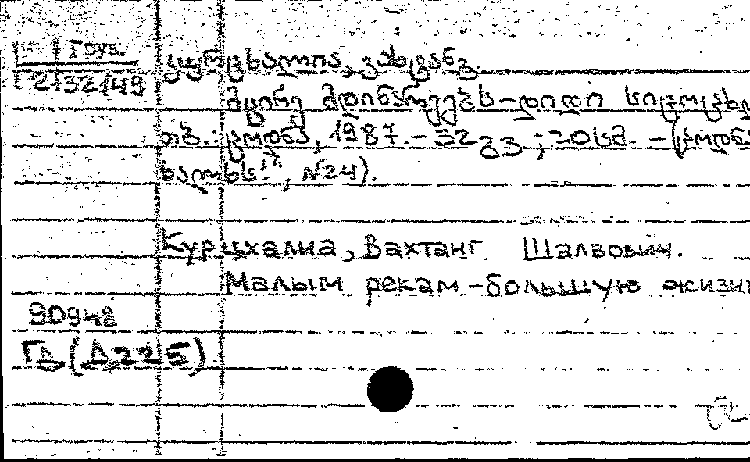 Груз.
2132149
კურცხალია, ვახტანგ.
მცირე მდინარეებს-დიდი სიცოცხლ
თბ.: ცოდნა, 1987.-32 გვ; 20 სმ. - (ცოდნა
ხალხს!", N24).
Курцхалиа, Вахтанг Шалвович.
Малым рекам-большую жизнь
90948
ГБ (Д225)